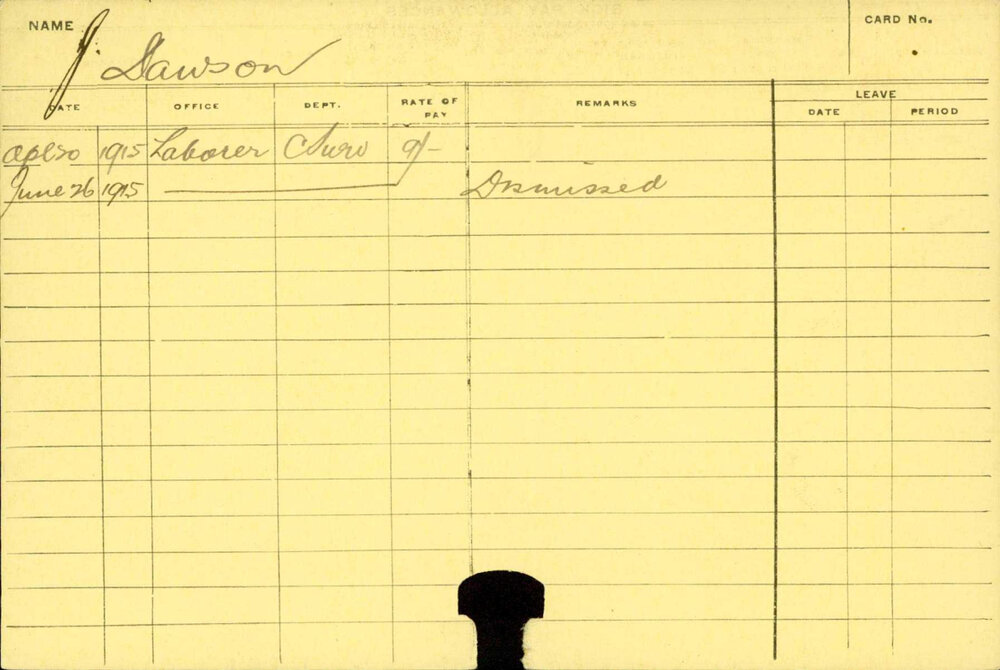 NAME
J. Dawson
CARD No.
DATE OFFICE DEPT. RATE OF PAY REMARKS LEAVE
DATE PERIOD
Apl 20 1915 Laborer C Surv 9/-
June 26 1915 Dismissed